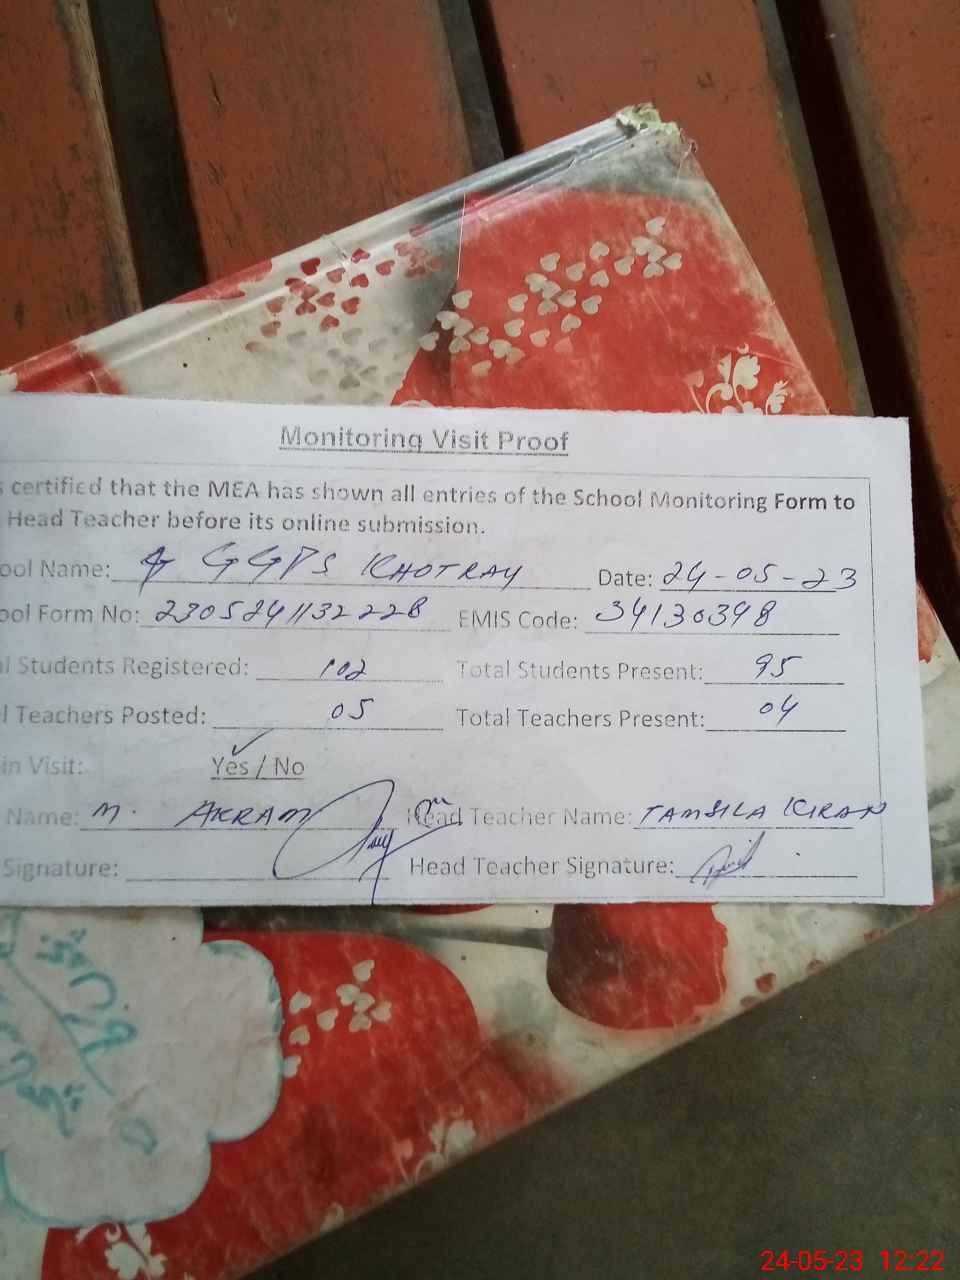 Monitoring Visit Proof
s certified that the MEA has shown all entries of the School Monitoring Form to
Head Teacher before its online submission.
ool Name: GGPS KHOTRAY Date: 24-05-23
ool Form No: 2305241132228 EMIS Code: 34130398
l Students Registered: 102 Total Students Present: 95
l Teachers Posted: 05 Total Teachers Present: 04
in Visit: Yes / No
Name: M. AKRAM Head Teacher Name: TAMSILA KIRAN
Signature: Head Teacher Signature:
24-05-23 12:22